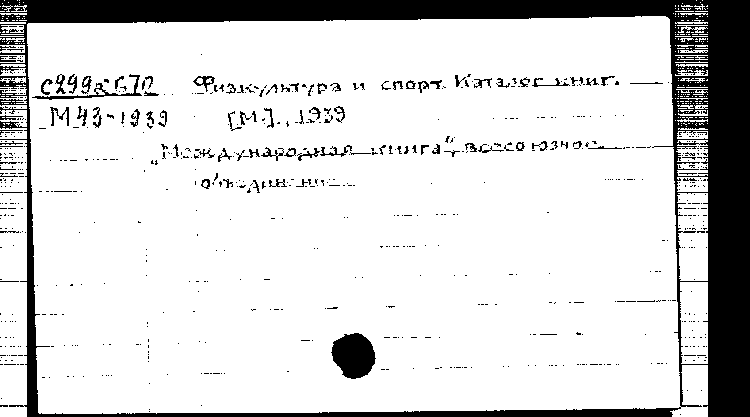 с299к G70 Физкультура и спорт. Каталог книг.
М43-1939 [М.]., 1939
„Международная книга“, всесоюзное
объединение